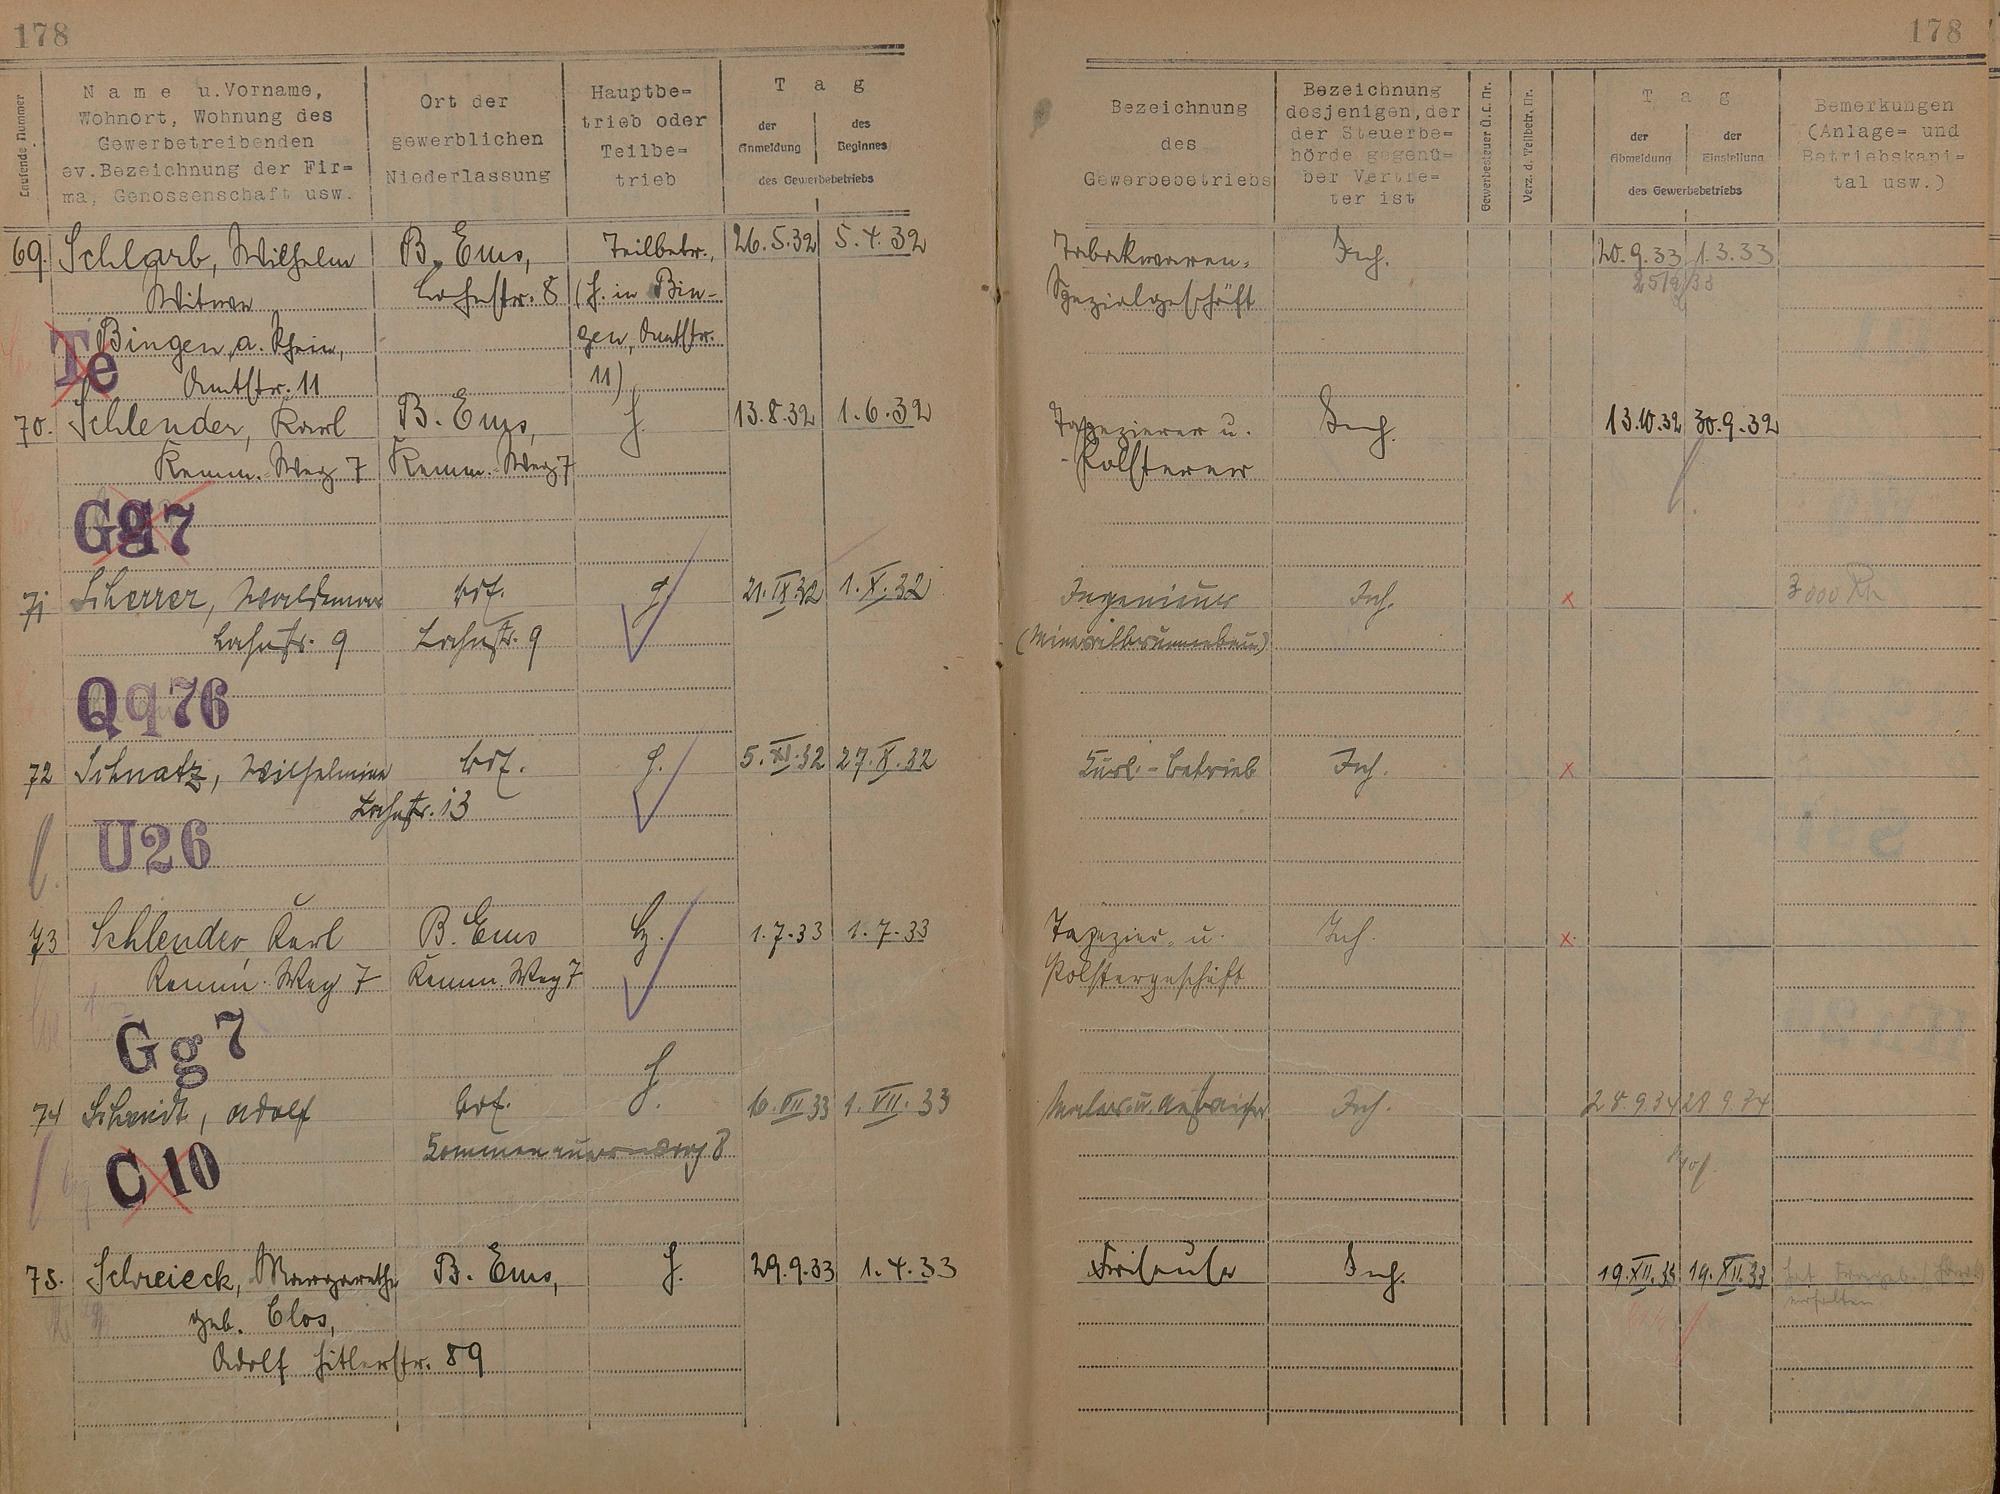 178
178
Laufende Nummer
Name u. Vorname,
Wohnort, Wohnung des
Gewerbetreibenden
ev. Bezeichnung der Fir=
ma, Genossenschaft usw.
Ort der
gewerblichen
Niederlassung
Hauptbe=
trieb oder
Teilbe=
trieb
Tag
der
Anmeldung
des
Beginnes
des Gewerbebetriebs
Bezeichnung
des
Gewerbebetriebs
Bezeichnung
desjenigen, der
der Steuerbe=
hörde gegenü=
ber Vertre=
ter ist
Gewerbesteuer Ü. L. Nr.
Verz. d. Teilbetr. Nr.
Tag
der
Abmeldung
der
Einstellung
des Gewerbebetriebs
Bemerkungen
(Anlage= und
Betriebskapi=
tal usw.)
69. Schlarb, Wilhelm B. Ems, Teilbetr., 26.5.32 5.4.32 Tabakwaren= Inh. 20.9.33 1.3.33
Witwe Lahnstr. 8 (H. in Bin- Spezialgeschäft
Bingen a. Rhein, gen, Amtstr.
Te
Amtstr. 11 11)
70. Schlender, Karl B. Ems, H. 13.8.32 1.6.32 Tapezierer u. Inh. 13.10.32 30.9.32
Kemm. Weg 7 Kemm. Weg 7 -Polsterer
Gg7
71 Scherrer, Waldemar H. 21.IX.32 1.X.32 Ingenieur Inh. x 3000
Lahnstr. 9 Lahnstr. 9 (Mineralbrunnenbau)
Qq76
72 Schnatz, Wilhelmine H. 5.XI.32 27.X.32 Kurl.-Betrieb Inh. x
Lahnstr. 13
U26
73 Schlender, Karl B. Ems 1.7.33 1.7.33 Tapezier= u. Inh. x
Kemm. Weg 7 Kemm. Weg 7 Polstergeschäft
Gg7
74 Schmidt, Adolf H. 1.VII.33 Maler u. Anstreicher Inh. 28.9.34
8
C10
75. Schreieck, Margarethe B. Ems, H. 29.9.33 1.4.33 Friseuse Inh. 19.XII.33 19.XII.33
geb. Clos, erhalten
Adolf Hitlerstr. 89